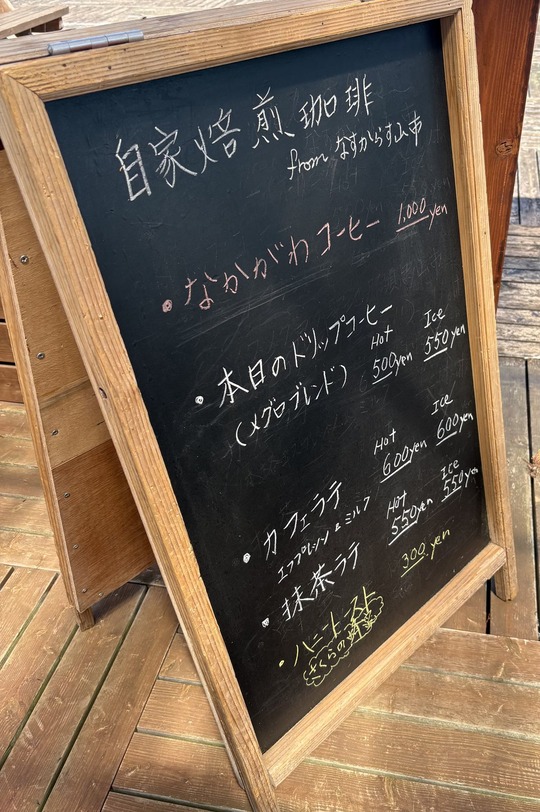 自家焙煎珈琲
from なすからす山市
・なかがわコーヒー 1,000 yen
・本日のドリップコーヒー Hot 500yen Ice 550yen
(メグロブレンド)
・カフェラテ Hot 600yen Ice 600yen
エスプレッソ & ミルク
・抹茶ラテ Hot 550yen Ice 550yen
・ハニートースト 300 yen
さくらの蜂蜜